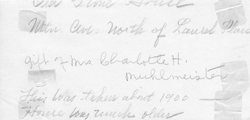 Old Stone House
Mtn. Ave. North of Laurel Place
gift of Mrs Charlotte H.
Muhlmeister
This was taken about 1900.
House was much older